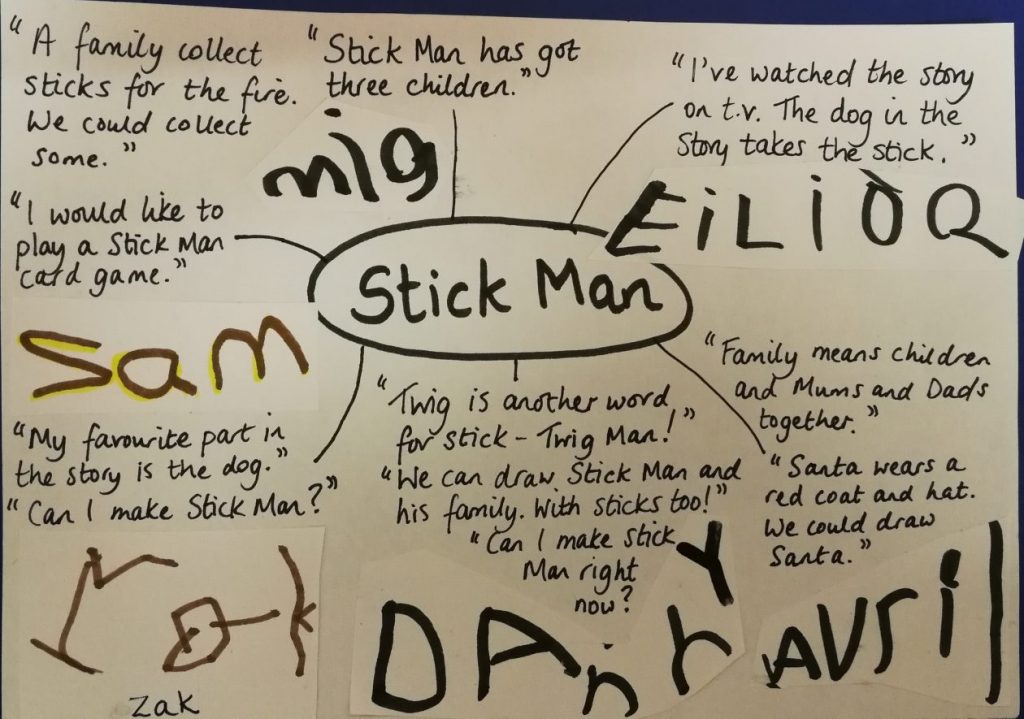 "A family collect
sticks for the fire.
We could collect
some."
"Stick Man has got
three children."
mig
"I've watched the story
on t.v. The dog in the
story takes the stick."
EiLiOQ
"I would like to
play a Stick Man
card game."
Sam
Stick Man
"My favourite part in
the story is the dog."
"Can I make Stick Man?"
zak
"Twig is another word
for stick – Twig Man!"
"We can draw Stick Man and
his family. With sticks too!"
"Can I make stick
Man right
now?
DAnny
"Family means children
and Mums and Dads
together."
"Santa wears a
red coat and hat.
We could draw
Santa."